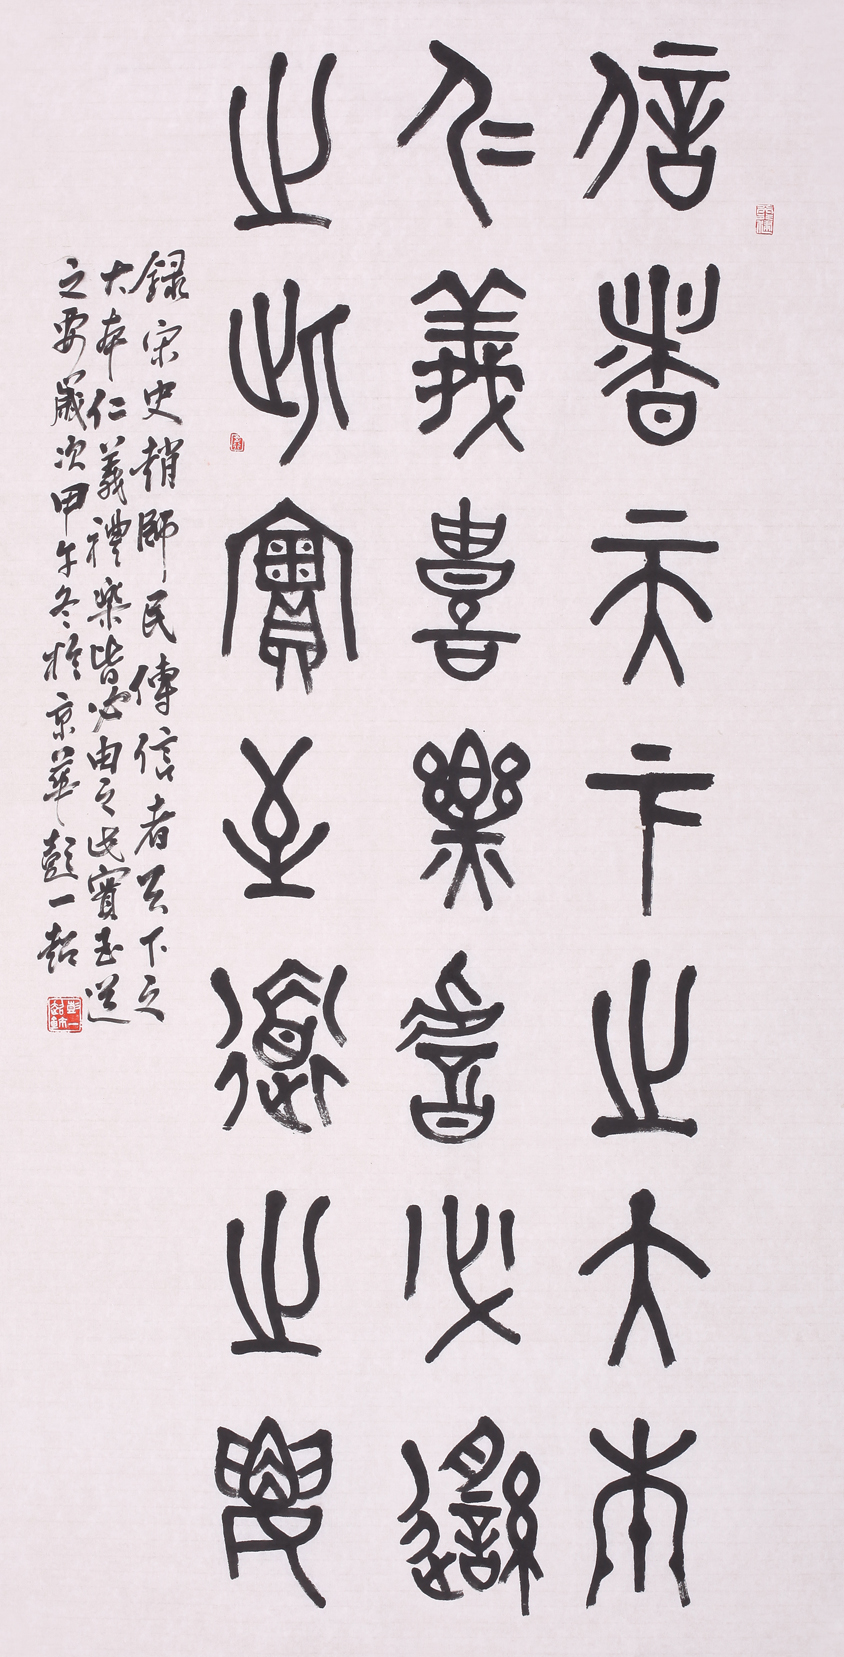 信者天下之大本
仁義禮樂皆必由
之此實至道之要
錄宋史趙師民傳信者天下之
大本仁義禮樂皆必由之此實至道
之要歲次甲午冬於京華彭一超